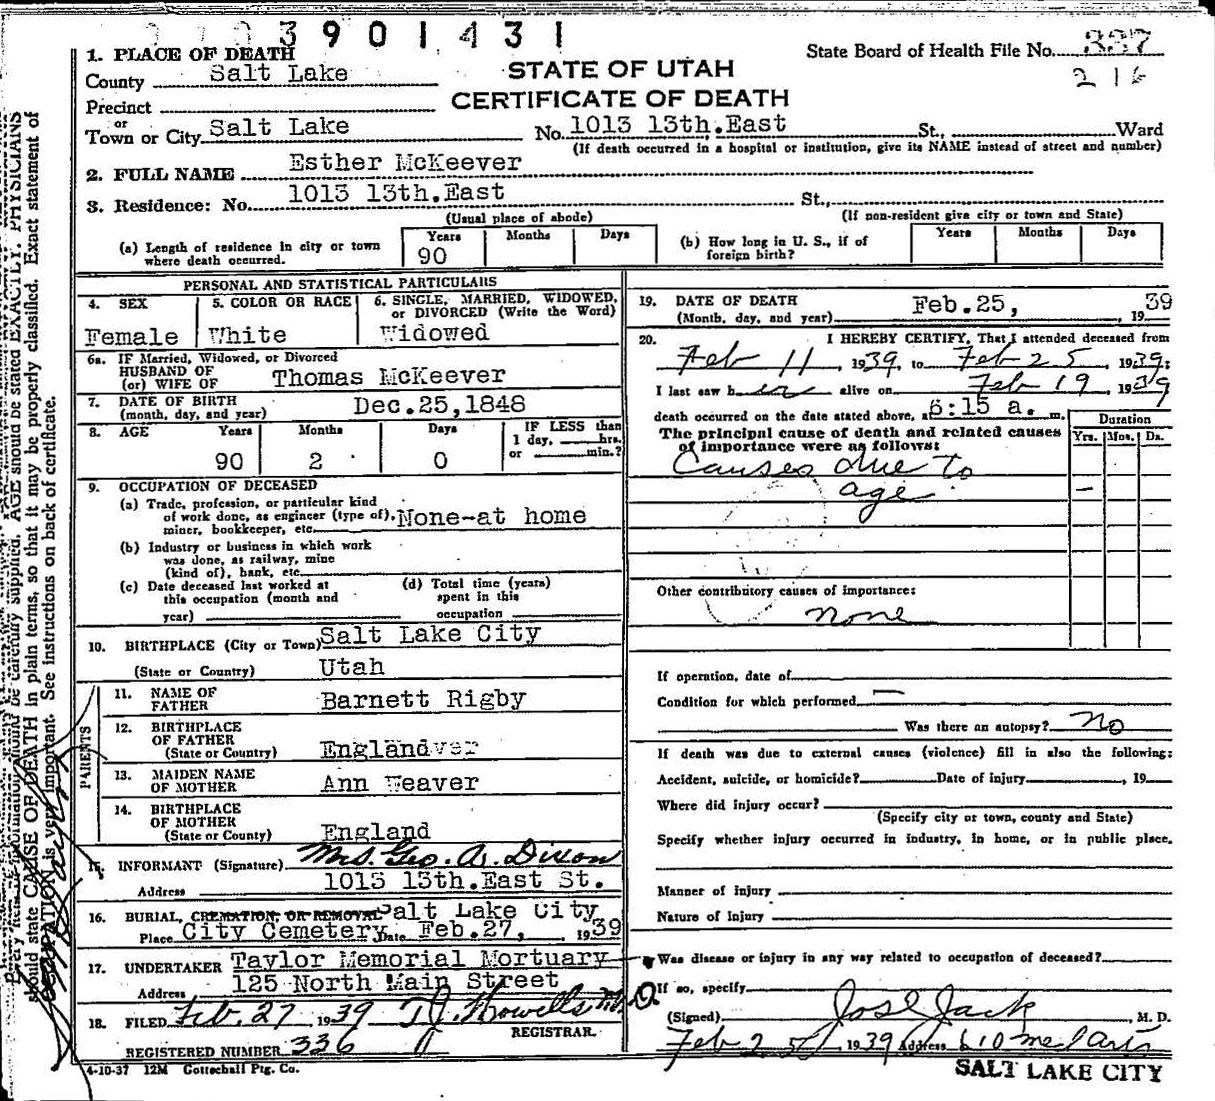 3901431
1. PLACE OF DEATH
State Board of Health File No. 337
County Salt Lake
216
STATE OF UTAH
CERTIFICATE OF DEATH
Precinct
or
Town or City Salt Lake No. 1013 13th.East St., Ward
(If death occurred in a hospital or institution, give its NAME instead of street and number)
2. FULL NAME Esther McKeever
3. Residence: No. 1013 13th.East St.,
(Usual place of abode) (If non-resident give city or town and State)
(a) Length of residence in city or town where death occurred. Years 90 Months Days
(b) How long in U. S., if of foreign birth? Years Months Days
PERSONAL AND STATISTICAL PARTICULARS
4. SEX Female
5. COLOR OR RACE White
6. SINGLE, MARRIED, WIDOWED, or DIVORCED (Write the Word) Widowed
6a. IF Married, Widowed, or Divorced
HUSBAND OF
(or) WIFE OF Thomas McKeever
7. DATE OF BIRTH
(month, day, and year) Dec.25,1848
8. AGE Years 90 Months 2 Days 0
IF LESS than
1 day, hrs.
or min.?
9. OCCUPATION OF DECEASED
(a) Trade, profession, or particular kind
of work done, as engineer (type of),
miner, bookkeeper, etc. None-at home
(b) Industry or business in which work
was done, as railway, mine
(kind of), bank, etc.
(c) Date deceased last worked at
this occupation (month and
year)
(d) Total time (years)
spent in this
occupation
10. BIRTHPLACE (City or Town) Salt Lake City
(State or Country) Utah
PARENTS
11. NAME OF FATHER Barnett Rigby
12. BIRTHPLACE OF FATHER
(State or Country) England
13. MAIDEN NAME OF MOTHER Ann Weaver
14. BIRTHPLACE OF MOTHER
(State or County) England
15. INFORMANT (Signature) Mrs. Geo. A. Dixon
Address 1013 13th.East St.
16. BURIAL, CREMATION, OR REMOVAL Salt Lake City
Place City Cemetery Date Feb.27, 1939
17. UNDERTAKER Taylor Memorial Mortuary
Address 125 North Main Street
18. FILED Feb. 27 1939 T.J. Howells M.D.
REGISTRAR.
REGISTERED NUMBER 336
4-10-37 12M Gottschall Ptg. Co.
19. DATE OF DEATH
(Month, day, and year) Feb.25, 1939
20. I HEREBY CERTIFY, That I attended deceased from
Feb 11, 1939, to Feb 25, 1939;
I last saw her alive on Feb 19, 1939
death occurred on the date stated above, at 6:15 a. m.
The principal cause of death and related causes
of importance were as follows:
Duration
Yrs. Mos. Ds.
Causes due to
age
Other contributory causes of importance:
none
If operation, date of
Condition for which performed
Was there an autopsy? No
If death was due to external causes (violence) fill in also the following:
Accident, suicide, or homicide? Date of injury, 19
Where did injury occur?
(Specify city or town, county and State)
Specify whether injury occurred in industry, in home, or in public place.
Manner of injury
Nature of injury
Was disease or injury in any way related to occupation of deceased?
If so, specify
(Signed) Jos E Jack, M. D.
Feb 25 1939 Address 610 Med Arts
SALT LAKE CITY
should state CAUSE OF DEATH in plain terms, so that it may be properly classified. Exact statement of
OCCUPATION is very important. See instructions on back of certificate.